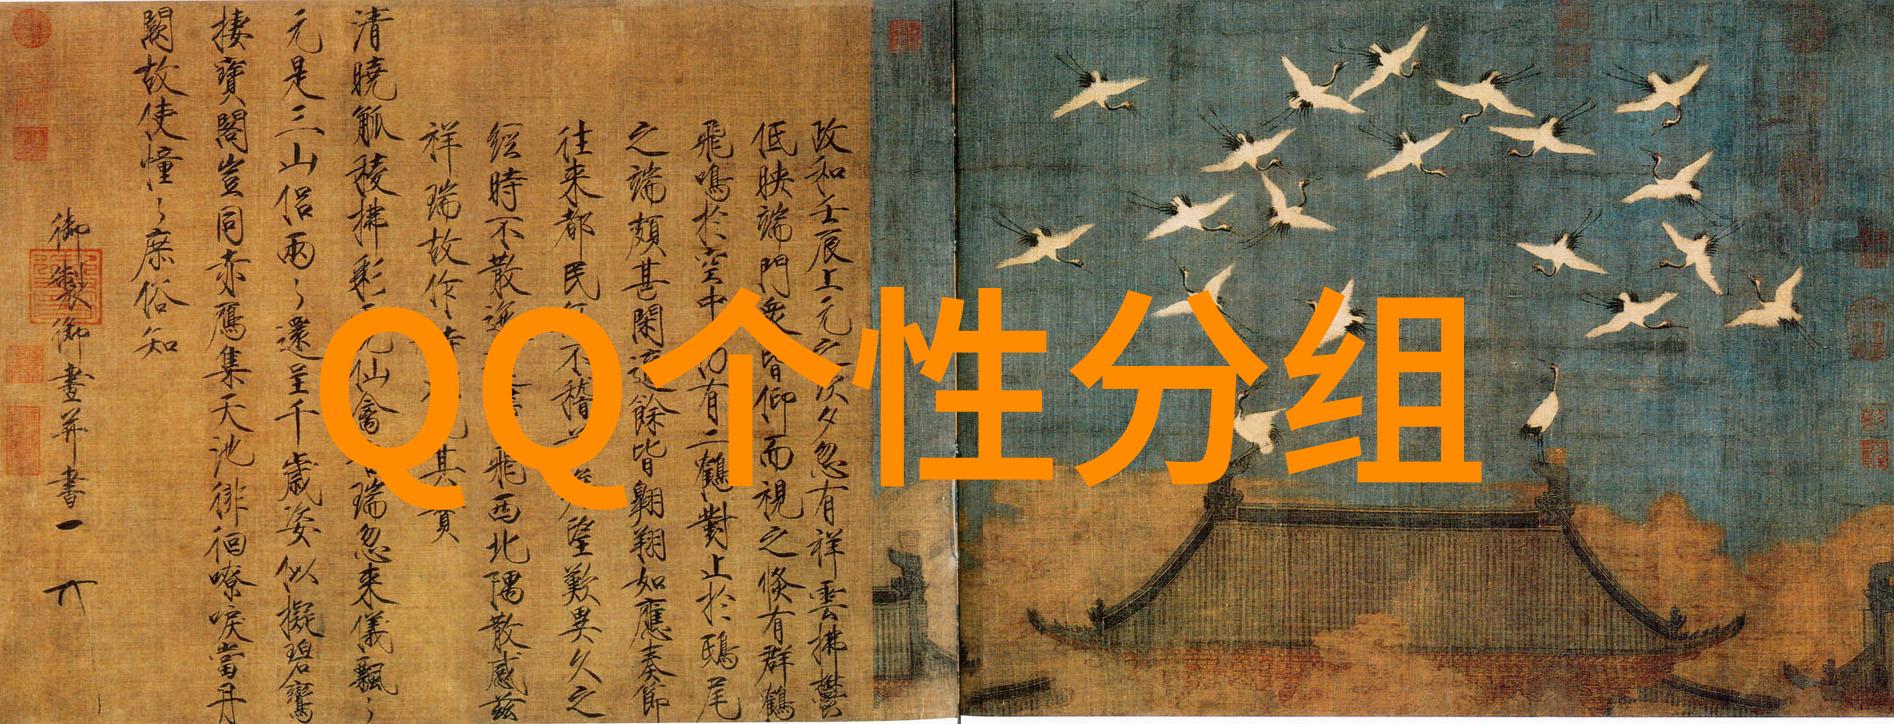 QQ个性分组
政和壬辰上元之次夕忽有祥雲拂鬱
低映端門衆皆仰而視之倏有群鶴
飛鳴於空中仍有二鶴對止於鴟尾
之端頗甚閑適餘皆翱翔如應奏節
往来都民不稽望歎異久之
經時不散迤飛西北隅散感茲
祥瑞故作詩其實
清曉觚稜拂彩仙禽瑞忽来儀飄々
元是三山侣兩々還呈千歳姿似擬碧鸞
棲寶閣豈同赤鴈集天池徘徊嘹唳當丹
闕故使憧々庶俗知
御製御畫并書